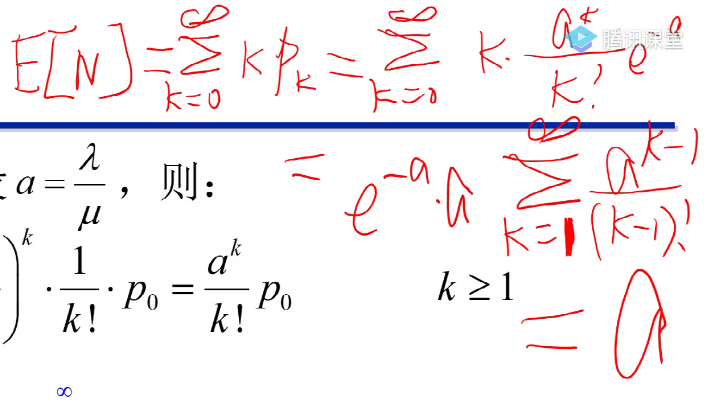 E[N] = ∑_{k=0}^{∞} k p_k = ∑_{k=0}^{∞} k · a^k / k! e^{-a}
腾讯课堂
a = λ/μ , 则:
= e^{-a} · a ∑_{k=1}^{∞} a^{k-1} / (k-1)!
)^k · 1/k! · p_0 = a^k/k! p_0    k ≥ 1
= a
∞